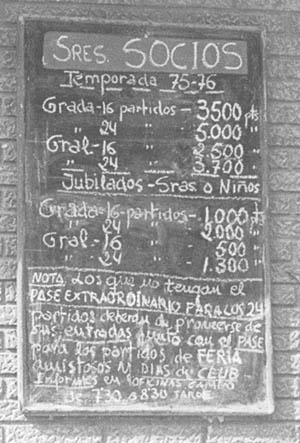 SRES. SOCIOS
Temporada 75-76
Grada-16 partidos - 3500 pts
" 24 " - 5.000 "
Gral-16 " - 2.500 "
" 24 " - 3.700 "
Jubilados-Sras o Niños
Grada-16-partidos-1.000 pts
" 24 " - 2.000 "
Gral-16 " - 500 "
" 24 " - 1.300 "
NOTA, Los que no tengan el
PASE EXTRAORDINARIO PARA LOS 24
partidos deberan de proveerse de
sus entradas junto con el PASE
para los partidos de FERIA
amistosos y DIAS de CLUB
Informes en OFICINAS CAMPO
de 7'30 a 8'30 TARDE